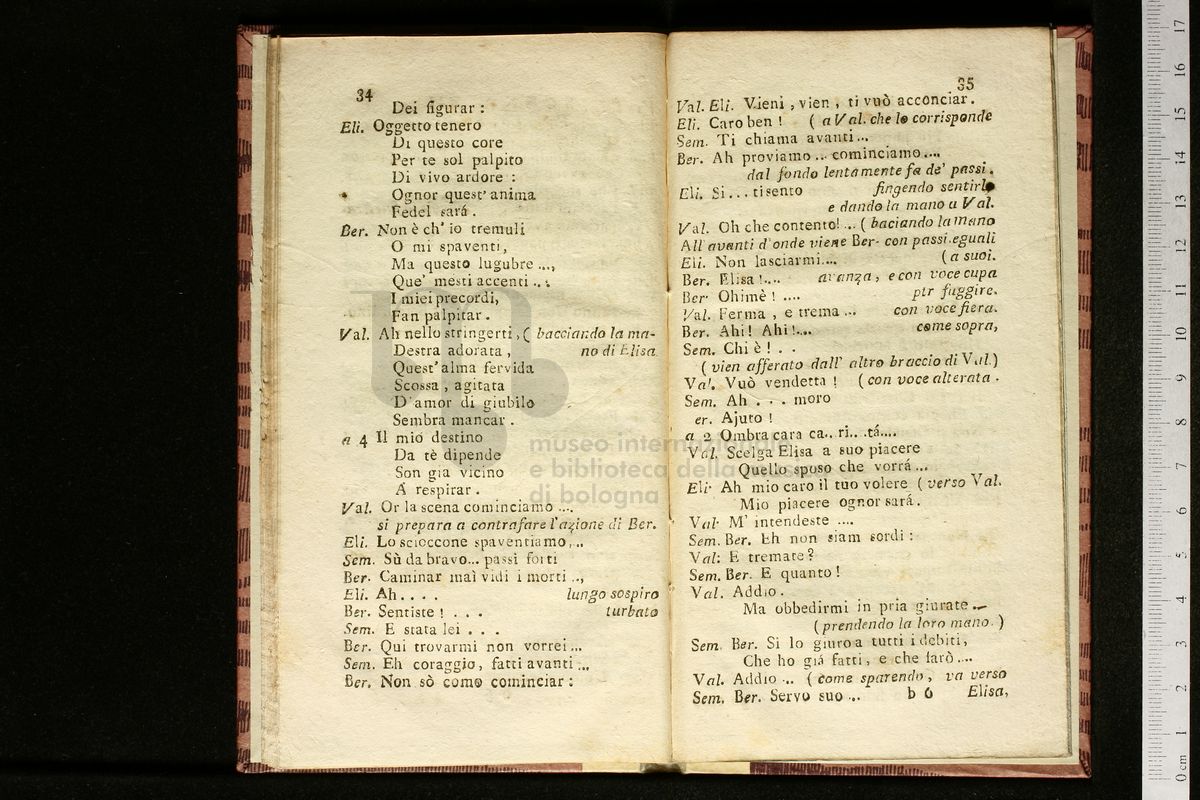 34
Dei figurar :
Eli. Oggetto tenero
Di questo core
Per te sol palpito
Di vivo ardore :
Ognor quest' anima
Fedel sará .
Ber. Non è ch' io tremuli
O mi spaventi,
Ma questo lugubre ...,
Que' mesti accenti ...
I miei precordi,
Fan palpitar .
Val. Ah nello stringerti, ( bacciando la ma-
Destra adorata , no di Elisa
Quest' alma fervida
Scossa , agitata
D'amor di giubilo
Sembra mancar .
a 4 Il mio destino
Da tè dipende
Son gia vicino
A respirar .
Val. Or la scena cominciamo ....
si prepara a contrafare l'azione di Ber.
Eli. Lo scioccone spaventiamo...
Sem. Sù da bravo... passi forti
Ber. Caminar maì vidi i morti ..,
Eli. Ah . . . . lungo sospiro
Ber. Sentiste ! . . . turbato
Sem. E stata lei . . .
Ber. Qui trovarmi non vorrei ...
Sem. Eh coraggio, fatti avanti ...
Ber. Non sò como cominciar :
35
Val. Eli. Vieni , vien , ti vuò acconciar .
Eli. Caro ben ! ( a Val. che lo corrisponde
Sem. Ti chiama avanti...
Ber. Ah proviamo ... cominciamo....
dal fondo lentamente fa de' passi.
Eli. Si . . . ti sento fingendo sentirlo
e dando la mano a Val.
Val. Oh che contento! ... ( baciando la mano
All' avanti d'onde viene Ber- con passi eguali
Eli. Non lasciarmi.... ( a suoi.
Ber. Elisa !.... avanza , e con voce cupa
Ber Ohimè ! .... ptr fuggire.
Val. Ferma , e trema ... con voce fiera.
Ber. Ahi ! Ahi !.... come sopra,
Sem. Chi è ! . .
( vien afferato dall' altro braccio di Val.)
Val. Vuó vendetta ! ( con voce alterata .
Sem. Ah . . . moro
er. Ajuto !
a 2 Ombra cara ca.. ri.. .tá....
Val. Scelga Elisa a suo piacere
Quello sposo che vorrá ...
Eli. Ah mio caro il tuo volere ( verso Val.
Mio piacere ognor sará .
Val. M' intendeste ....
Sem. Ber. Eh non siam sordi :
Val: E tremate?
Sem. Ber. E quanto !
Val. Addio .
Ma obbedirmi in pria giurate ...
(prendendo la loro mano. )
Sem. Ber. Si lo giuro a tutti i debiti,
Che ho giá fatti, e che farò ....
Val. Addio ... ( come sparendo , va verso
Sem. Ber. Servo suo ... b 6 Elisa,
museo internazionale
e biblioteca della
di bologna
0 cm 1 2 3 4 5 6 7 8 9 10 11 12 13 14 15 16 17